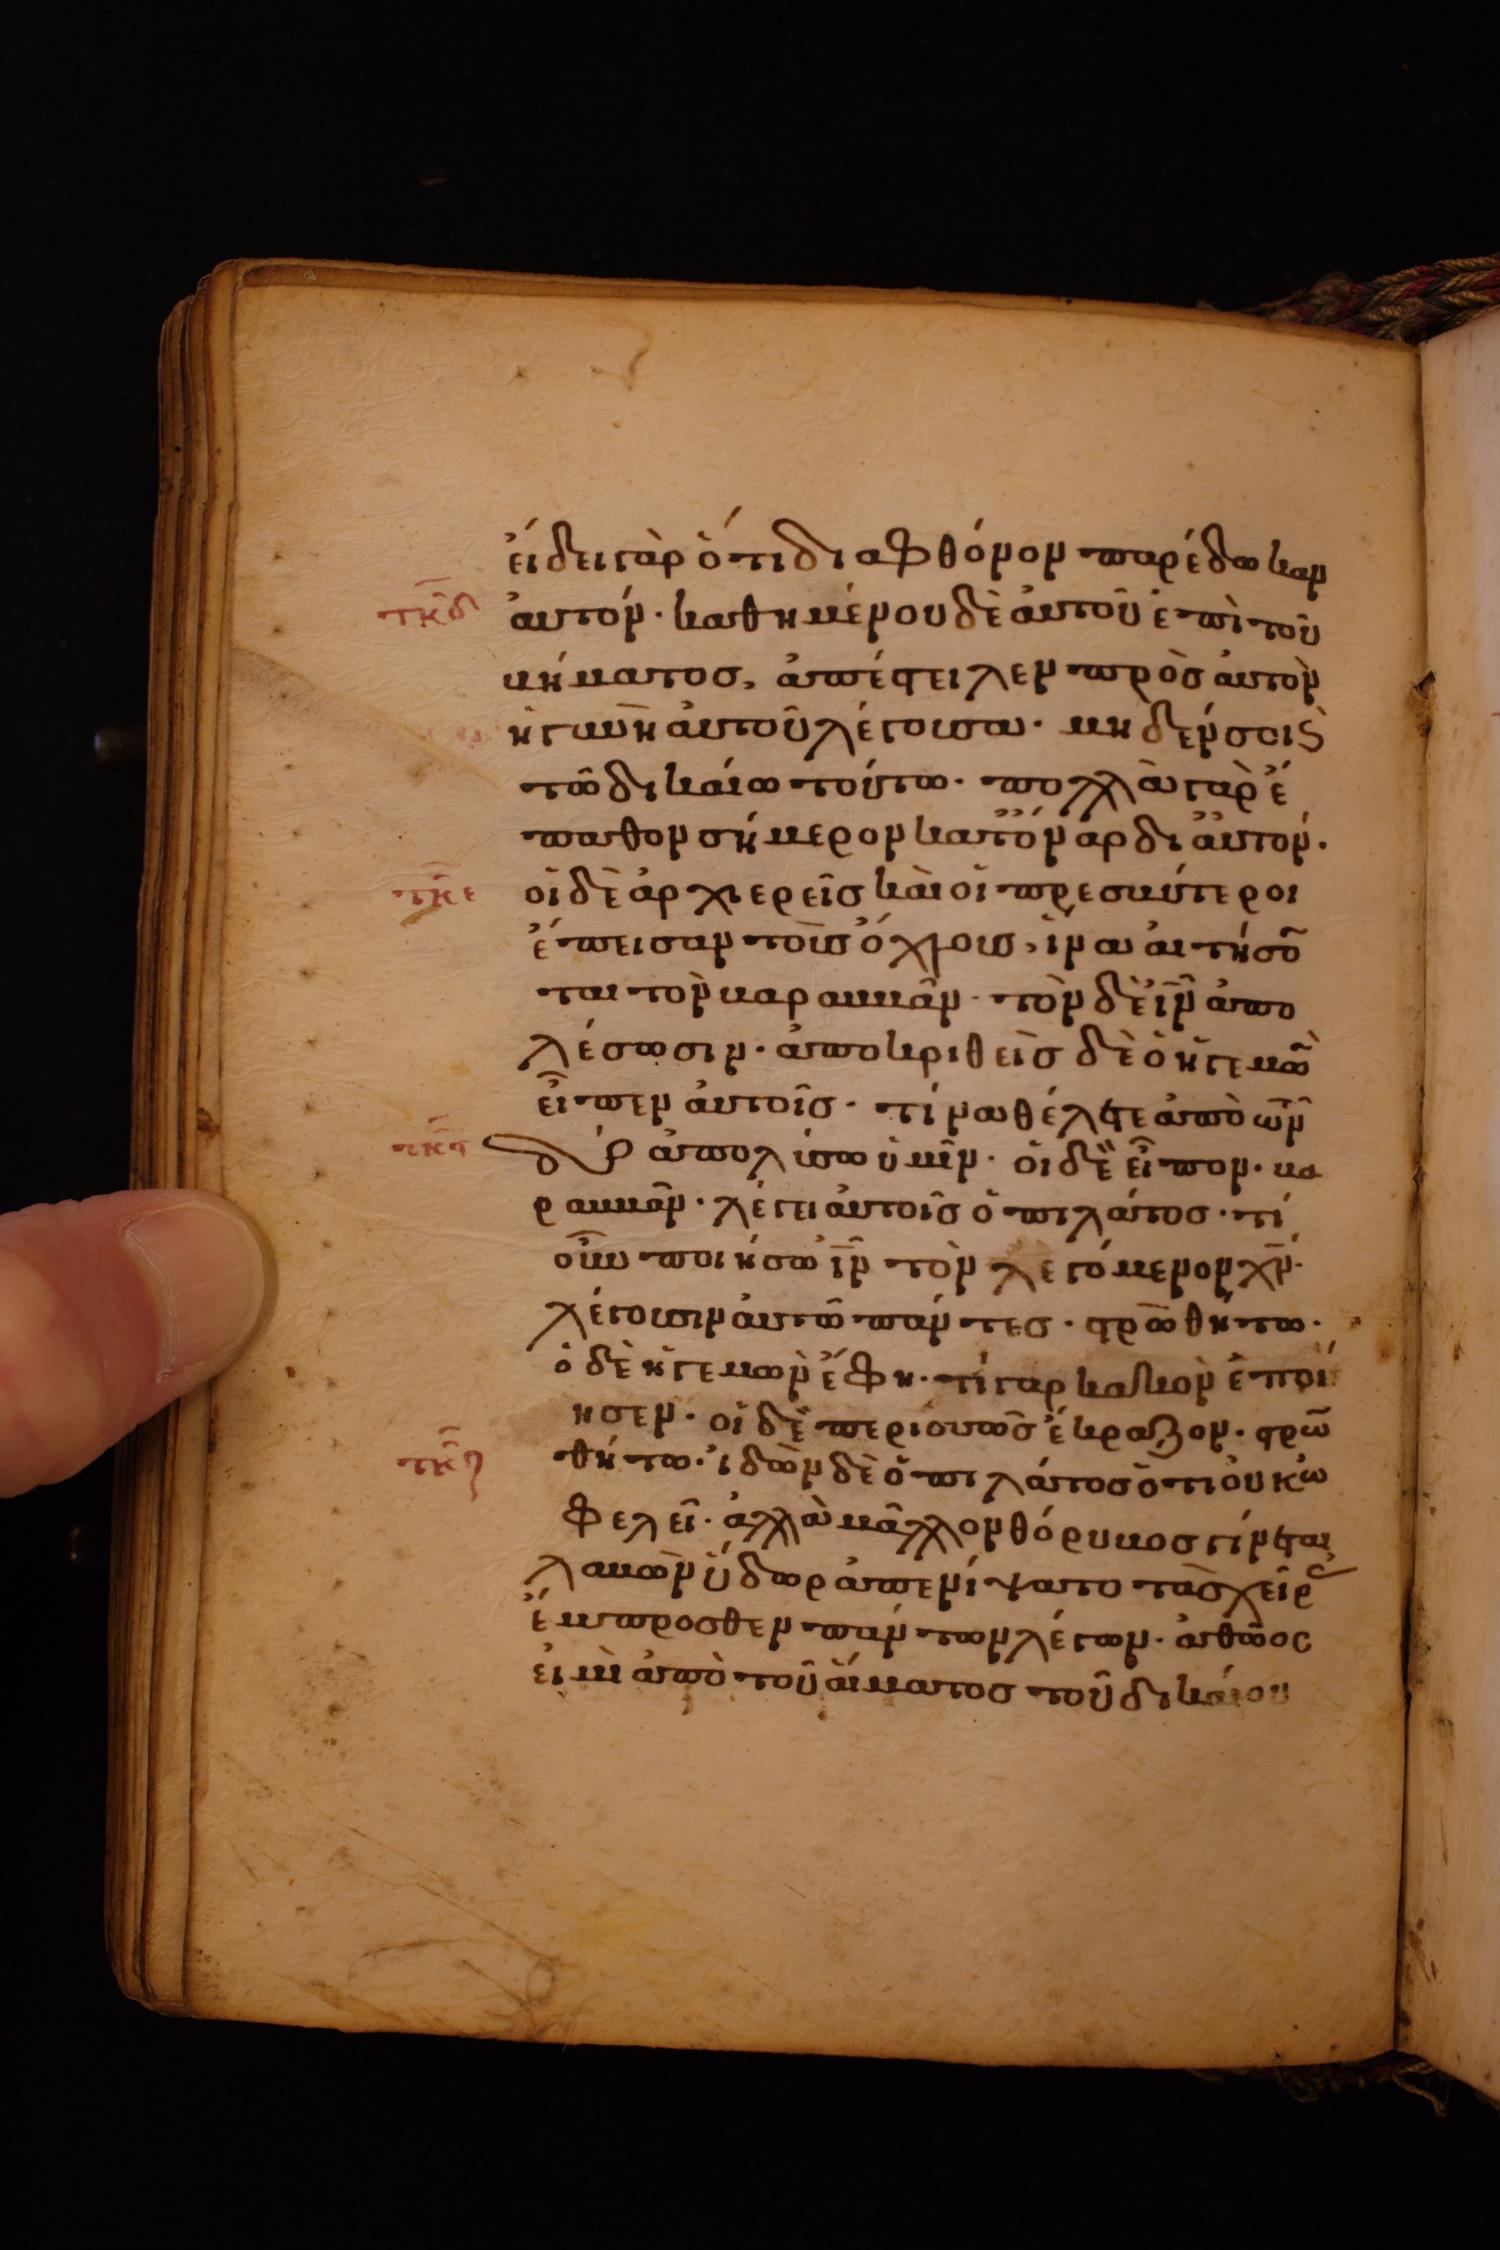 ἐίδει γὰρ ὅτι διαφθόνον παρέδωκαν
τκδ ἀυτόν· καθημένου δὲ ἀυτοῦ ἐπὶ τοῦ
βήματοσ, ἀπέστειλεν πρὸσ ἀυτὸν
ἡ γυνὴ ἀυτοῦ λέγουσα· μηδέν σοι ϛ
τῶ δικάιω τούτω· πολλὰ γὰρ ἔ
παθον σήμερον κατ ὄναρ δι ἀυτόν.
τκε οἱ δὲ ἀρχιερεῖσ κὰι οἱ πρεσβύτεροι
ἔπεισαν τοῖσ ὄχλοισ, ἵνα ἀιτήσο
ται τὸν βαραββᾶν· τὸν δὲ ἰ̅ν̅ ἀπο
λέσωσιν· ἀποκριθεὶσ δὲ ὁ ἡγεμὼ
ἐῖπεν ἀυτοῖσ· τίνα θέλετε ἀπὸ τῶν
τκϛ δύο ἀπολύσω ὑμῖν· ὁι δὲ ἐῖπον· βα
ραββᾶν· λέγει ἀυτοῖσ ὁ πιλάτοσ· τί
οὖν ποιήσω ἰ̅ν̅ τὸν λεγόμενον χ̅ν̅·
λέγουσιν ἀυτῶ πάντεσ· στρ̅ω̅θήτω·
ὁ δὲ ἡγεμὼν ἔφη· τί γαρ κακὸν ἐποί
ησεν· οἱ δὲ περισσῶσ ἔκραζον· στρ̅ω̅
τκζ θήτω· ἰδὼν δὲ ὁ πιλάτοσ ὅτι ὀυκ ὠ
φελεῖ· ἀλλὰ μᾶλλον θόρυβοσ γίνεται
λαβὼν ὕδωρ ἀπενίψατο τὰσ χεῖρ
ἔμπροσθεν πάντων λέγων· ἀθῶος
ἐιμὶ ἀπὸ τοῦ ἅιματοσ τοῦ δικάιου